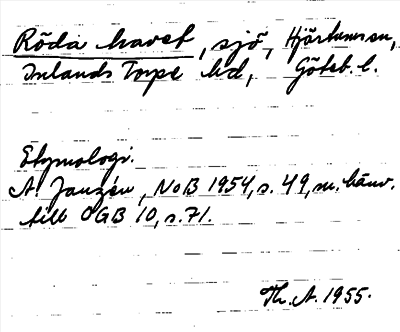 Röda havet, sjö, Hjärtums sn,
Inlands Torpe hd, Göteb. l.
Etymologi.
A. Janzén, NoB 1954, s. 49, m. hänv.
till OGB 10, s. 71.
Th. A. 1955.